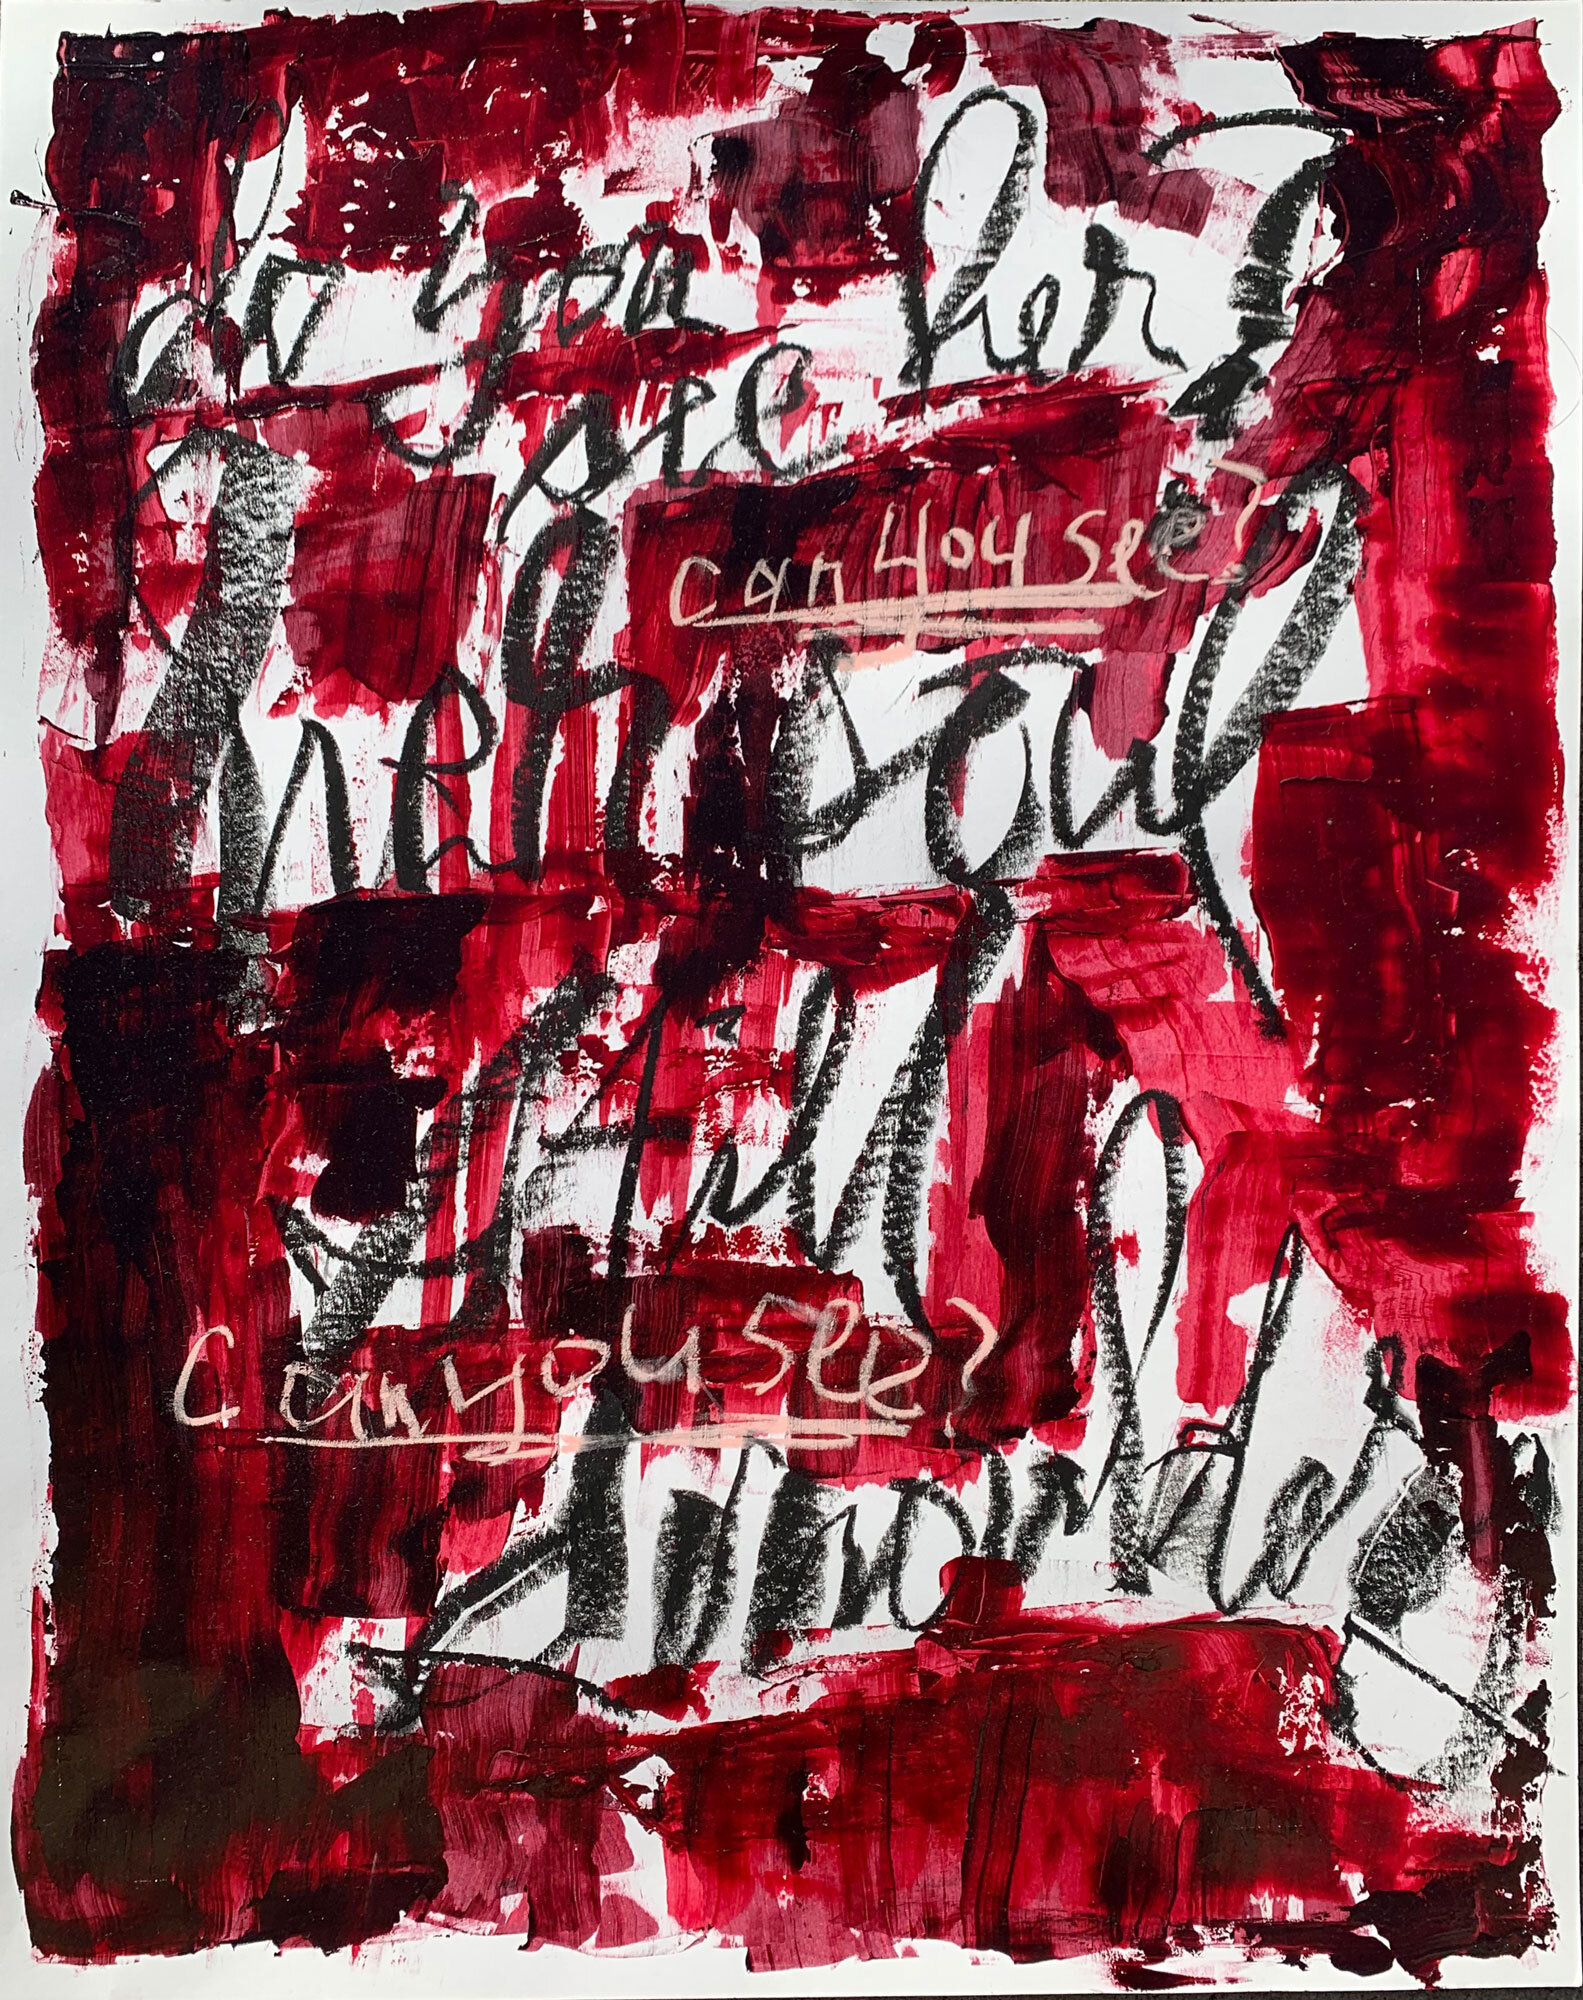 do you her?
see
can you see?
her soul
still
can you see?
smolders